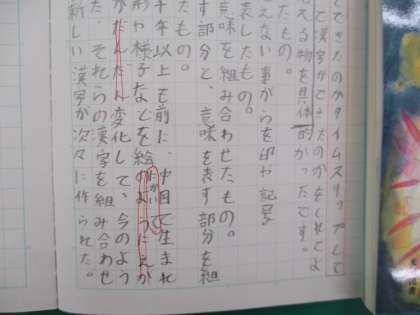 てできたのかタイムスリップして
て漢字ができたのかをしれてよ
える物を具体的かったです。
たもの。
えない事がらを印や記号
表したもの。
意味を組み合わせたもの。
す部分と、意味を表す部分を組
たもの。
千年以上も前に、中国で生まれ
形や様子などを絵のようにえが
にかいて
だんだん変化して、今のよう
た、それらの漢字を組み合わせ
新しい漢字が次々に作られた。